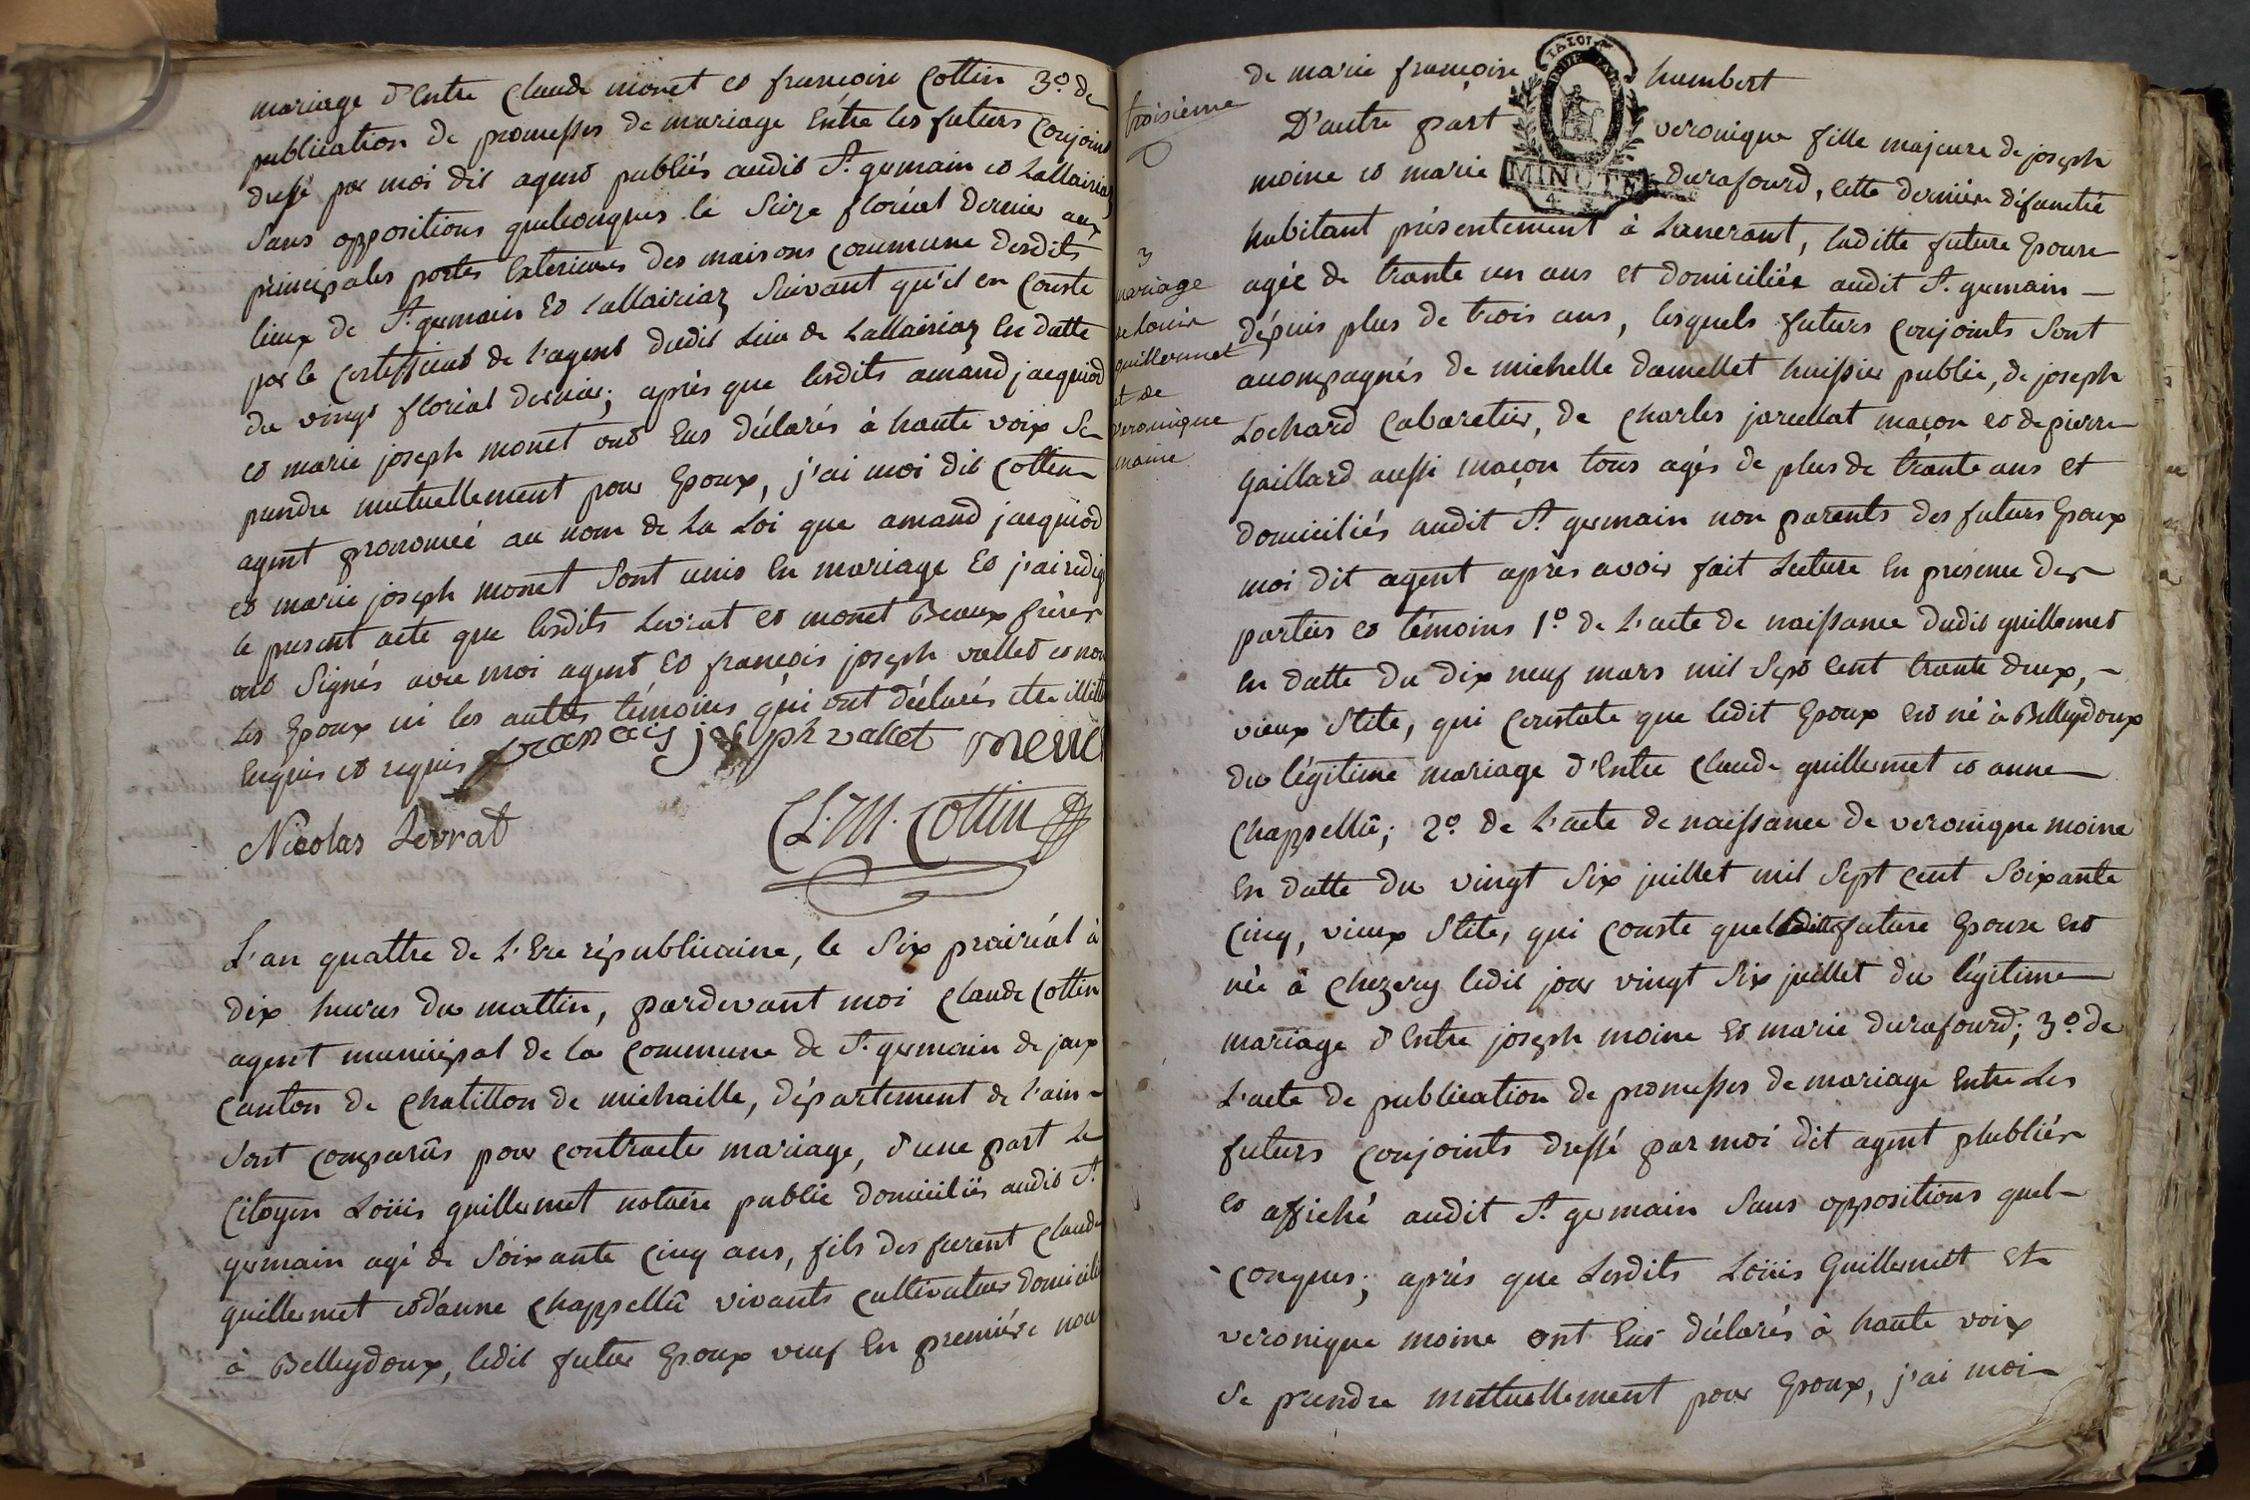 mariage d'Entre Claude monet et françoise Cottin 3.º de
publication de promesses de mariage Entre les futurs Conjoint
dressé par moi dit agent publiés audit St. germain et Lallairiaz
sans oppositions quelconques le Seize floréal dernier aux
principales portes Exterieures des maisons commune desdits
lieux de St. germain Et Lallairiaz Suivant qu'il en Conste
par le Certifficat de l'agent dudit Lieu de Lallairiaz En datte
du vingt floréal dernier; après que lesdits amand jacquiod
et marie joseph monet ont Eus déclarés à haute voix Se
prendre mutuellement pour Epoux, j'ai moi dit Cottin
agent prononcé au nom de La Loi que amand jacquiod
et marie joseph monet Sont unis En mariage Et j'ai rédigé
le present acte que lesdits Levrat et monet Beaux frères
ont Signés avec moi agent Et françois joseph vallet et non
Les Epoux ni les autres témoins qui ont déclarés être illittérés
Enquis et requis françois joseph vallet monet
Nicolas Levrat CL. M. Cottin
L'an quattre de L'Ere républicaine, le Six prairéal à
dix heures du mattin, pardevant moi Claude Cottin
agent municipal de la Commune de St. germain de joux
Canton de Chatillon de michaille, département de l'ain
Sont comparûs pour contracter mariage, d'une part Le
Citoyen Loüis guillermet notaire public domiciliés audit St.
germain agé de Soixante Cinq ans, fils des furent Claude
guillermet et d'anne Chappellû vivants Cultivateurs domiciliés
à Belleydoux, ledit futur Epoux veuf En première noce
troisième
3
mariage
de louis
guillermet
et de
veronique
moine
de marie françoise humbert
D'autre part veronique fille majeure de joseph
MINUTE
moine et marie durafourd, cette dernière défunctié
habitant présentement à Lanerant, laditte future Epouse
agée de trante un ans et domiciliée audit St. germain
dépuis plus de trois ans, lesquels futurs conjoints Sont
acompagnés de michelle damellet huissier public, de joseph
Lochard Cabaretier, de Charles jarcellat maçon et de pierre
gaillard aussi maçon tous agés de plus de trante ans et
domiciliés audit St. germain non parents des futurs Epoux
moi dit agent après avoir fait Lecture En présence des
parties et témoins 1.º de L'acte de naissance dudit guillermet
En datte du dix neuf mars mil Sept Cent trante deux,
vieux Stile, qui Constate que ledit Epoux est né à Belleydoux
du légitime mariage d'Entre Claude guillermet et anne
Chappellû; 2.º de L'acte de naissance de veronique moine
En datte du vingt Six juillet mil Sept Cent Soixante
Cinq, vieux Stile, qui Conste que laditte future Epouse est
née à Chezery ledit jour vingt Six juillet du légitime
mariage d'Entre joseph moine Et marie durafourd; 3.º de
L'acte de publication de promesses de mariage Entre Les
futurs Conjoints dressé par moi dit agent plubliés
et affiché audit St. germain Sans oppositions quel-
conques; après que Lesdits Loüis Guillermet et
veronique moine ont Eus déclarés à haute voix
Se prendre mutuellement pour Epoux, j'ai moi